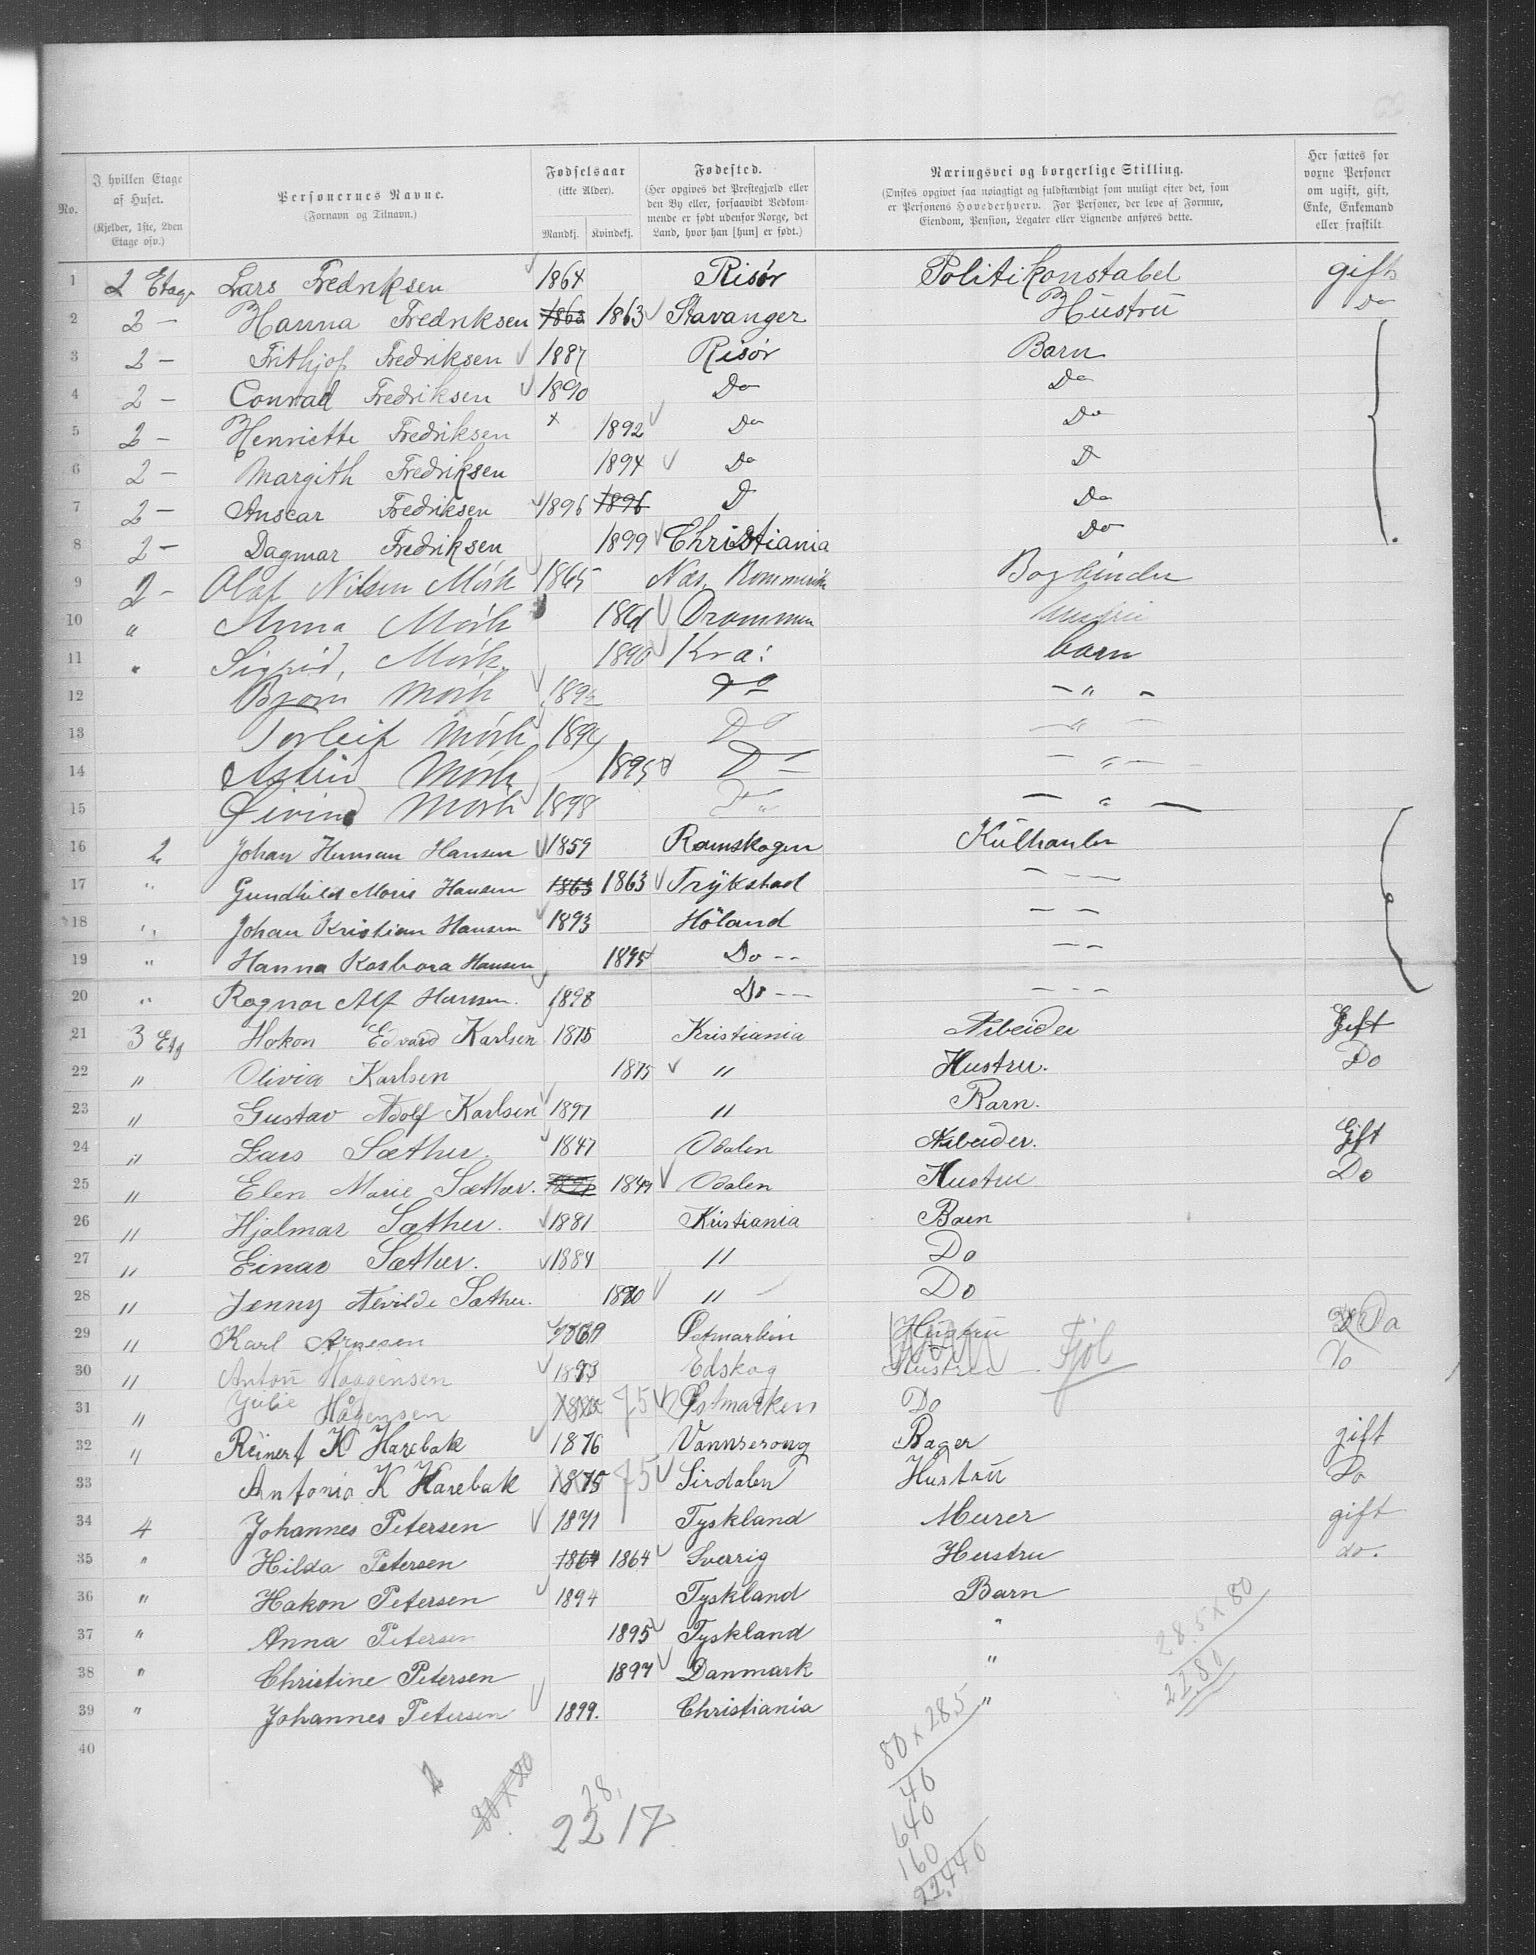 No. | I hvilken Etage af Huset. (Kjelder, 1ste, 2den Etage osv.) | Personernes Navne. (Fornavn og Tilnavn.) | Fødselsaar (ikke Alder). Mandkj. Kvindekj. | Fødested. (Her opgives det Prestegjæld eller den By eller, forsaavidt Vedkommende er født udenfor Norge, det Land, hvor han [hun] er født.) | Næringsvei og borgerlige Stilling. (Ønskes opgivet saa nøiagtigt og fuldstændigt som muligt efter det, som er Personens Hovederhverv. For Personer, der leve af Formue, Eiendom, Pension, Legater eller Lignende anføres dette. | Her sættes for voxne Personer om ugift, gift, Enke, Enkemand eller fraskilt
1 2 Etage Lars Fredriksen 1864 Risör Politikonstabel gift
2 2 — Hanna Fredriksen 1863 1863 Stavanger Hustru Do
3 2 — Frithjof Fredriksen 1887 Risör Barn
4 2 — Conrad Fredriksen 1890 Do Do
5 2 — Henriette Fredriksen 1892 Do Do
6 2 — Margith Fredriksen 1894 Do D
7 2 — Anscar Fredriksen 1896 1896 D Do
8 2 — Dagmar Fredriksen 1899 Christiania Do
9 2 — Olaf Nilsen Mörk 1865 Næs, Rommerike Bogbinder
10 " Anna Mörk Drammen hustru
11 " Sigrid, Mörk 1890 Kra: barn
12 Bjorn Mörk Do — " —
13 Torleif Mörk 1894 Do — " —
14 Astrid Mörk 1895 D — — " —
15 Øivind Mörk 1898 " — " —
16 2 Johan Herman Hansen 1859 Romskogen Kulhanler
17 " Gundhild Marie Hansen 1863 1863 Trykstad — — —
18 " Johan Kristian Hansen 1893 Höland — —
19 " Hanna Hansen 1895 Do -- — —
20 " Ragnar Alf Hansen. 1898 Do -- — - —
21 3 Etg Hokon Edvard Karlsen 1875 Kristiania Arbeider Gift
22 " Olivia Karlsen 1875 " Hustru. Do
23 " Gustav Adolf Karlsen 1897 " Barn.
24 " Lars Sæther. 1847 Odalen Arbeider. Gift
25 " Elen Marie Sæther. 1849 Odalen Hustru Do
26 " Hjalmar Sæther. 1881 Kristiania Barn
27 " Einar Sæther. 1884 " Do
28 " Jenny Sæther. " Do
29 " Karl Arnesen 1869 Østmarken Hustru Do
30 " Anton Haagensen 1873 Edskog Hustru Fjöl Do
31 " Julie Hågensen 75 Østmarken Do
32 " Reinert K Harebak 1876 Vannserong Bager gift
33 Antonia K Harebak 1875 75 Sirdalen Hustru Do
34 4 Johannes Petersen 1871 Tyskland Murer gift
35 " Hilda Petersen 1864 1864 Sverrig Hustru do.
36 " Hakon Petersen 1894 Tyskland Barn
37 " Anna Petersen 1895 Tyskland "
38 " Christine Petersen 1897 Danmark "
39 " Johannes Petersen 1899. Christiania "
40
28.5 x 80
22.80
80 x 28.5
40
640
160
22.440
2
80 x 20
28,
2217